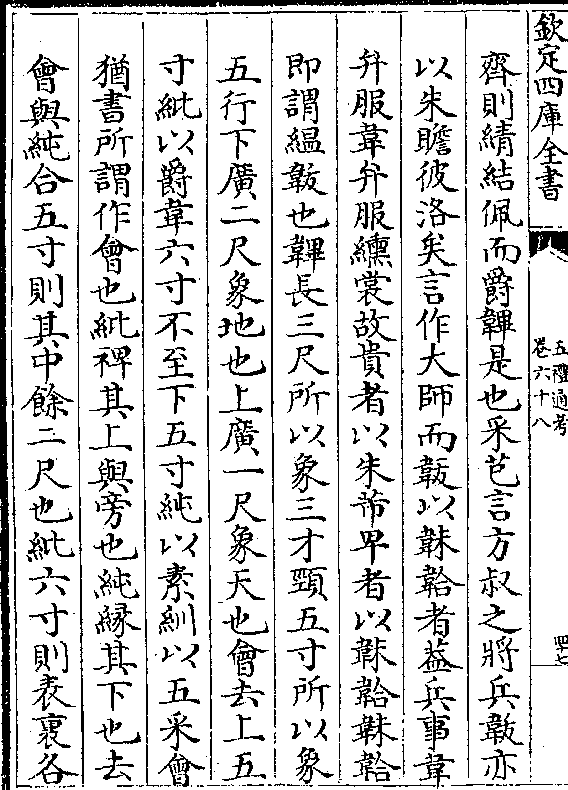 欽定四庫全書
五禮通考
卷六十八
四七
齊則綪結佩而爵韠是也采芑言方叔之將兵韍亦
以朱瞻彼洛矣言作六師而韍以韎韐者葢兵事韋
弁服韋弁服纁裳故貴者以朱芾卑者以韎韐韎韐
即謂緼韍也韠長三尺所以象三才頸五寸所以象
五行下廣二尺象地也上廣一尺象天也會去上五
寸紕以爵韋六寸不至下五寸純以素紃以五采會
猶書所謂作會也紕裨其上與旁也純縁其下也去
會與純合五寸則其中餘二尺也紕六寸則表裏各